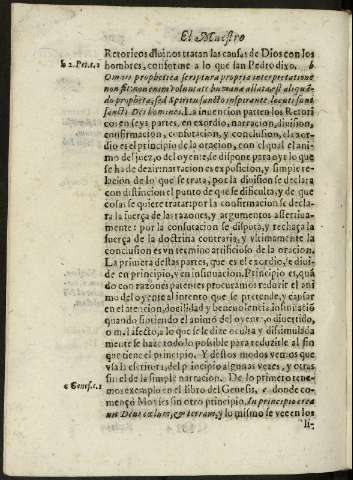 El Maestro
Retoricos diuinos tratan las causas de Dios con los
b 2. Pet. 1. 2
hombres, conforme a lo que san Pedro dixo. b
Omnis prophetica scriptura propria interpretatione
non fit: non enim voluntate humana allata est aliquã
do prophetia, sed Spiritu sancto inspirante locuti sunt
sancti Dei homines. La inuencion parten los Retori
cos en seys partes, en exordio, narracion, diuision,
confirmacion, confutacion, y conclusion, el exor-
dio es el principio de la oracion, con el qual el ani
mo del juez, o del oyente, se dispone para oyr lo que
se ha de dezir: narracion es exposicion, y simple re-
lacion de lo que se trata, por la diuision se declara
con distincion el punto de que se dificulta, y de que
cosas se quiere tratar: por la confirmacion se decla
ra la fuerça de las razones, y argumentos assertiua-
mente: por la confutacion se disputa, y rechaça la
fuerça de la doctrina contraria, y vltimamente la
conclusion es vn termino artificioso de la oracion.
La primera destas partes, que es el exordio, se diui-
de en principio, y en insinuacion. Principio es, quã
do con razones patentes procuramos reduzir el ani
mo del oyente al intento que se pretende, y causar
en el atencion, docilidad y beneuolencia, insinuaciõ
quando sintiendo el animo del oyente, o diuertido,
o mal afecto, a lo que se le dize oculta y dissimulada
mente se haze todo lo possible para reduzirle al fin
que tiene el principio. Y destos modos vemos que
vsa la escritura, del principio algunas vezes, y otras
sin el de la simple narracion. De lo primero tene-
c Genes. 1. 1
mos exemplo en el libro del Genesis, c donde co-
mençò Moyses sin otro principio, In principio crea
uit Deus cœlum, & terram, y lo mismo se vee en los
li-